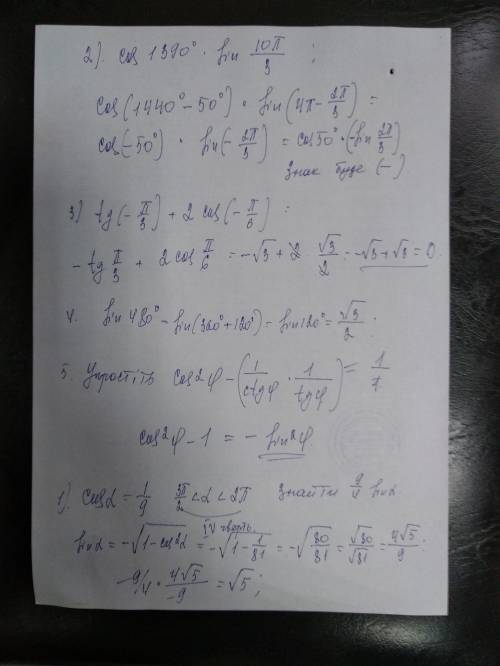 2). cos 1390° · sin 10π/3 ;
cos(1440° - 50°) · sin(4π - 2π/3) =
cos(-50°) · sin(-2π/3) = cos 50° · (-sin 2π/3)
Знак буде (-)
3) tg(-π/3) + 2 cos(-π/6) :
- tg π/3 + 2 cos π/6 = -√3 + 2 √3/2 = -√3 + √3 = 0.
4. sin 480° - sin(360° + 120°) = sin 120° = √3/2 .
5. Упростіть cos²φ - (1/ctgφ · 1/tgφ) = 1/1
cos²φ - 1 = - sin²φ
1) cos α = 1/9 3π/2 < α < 2π Знайти 9/4 sin α.
IV чверть.
sin α = -√(1 - cos²α) = -√(1 - 1/81) = -√(80/81) = √80/√81 = 4√5/9 .
-9/4 · 4√5/-9 = √5 ;